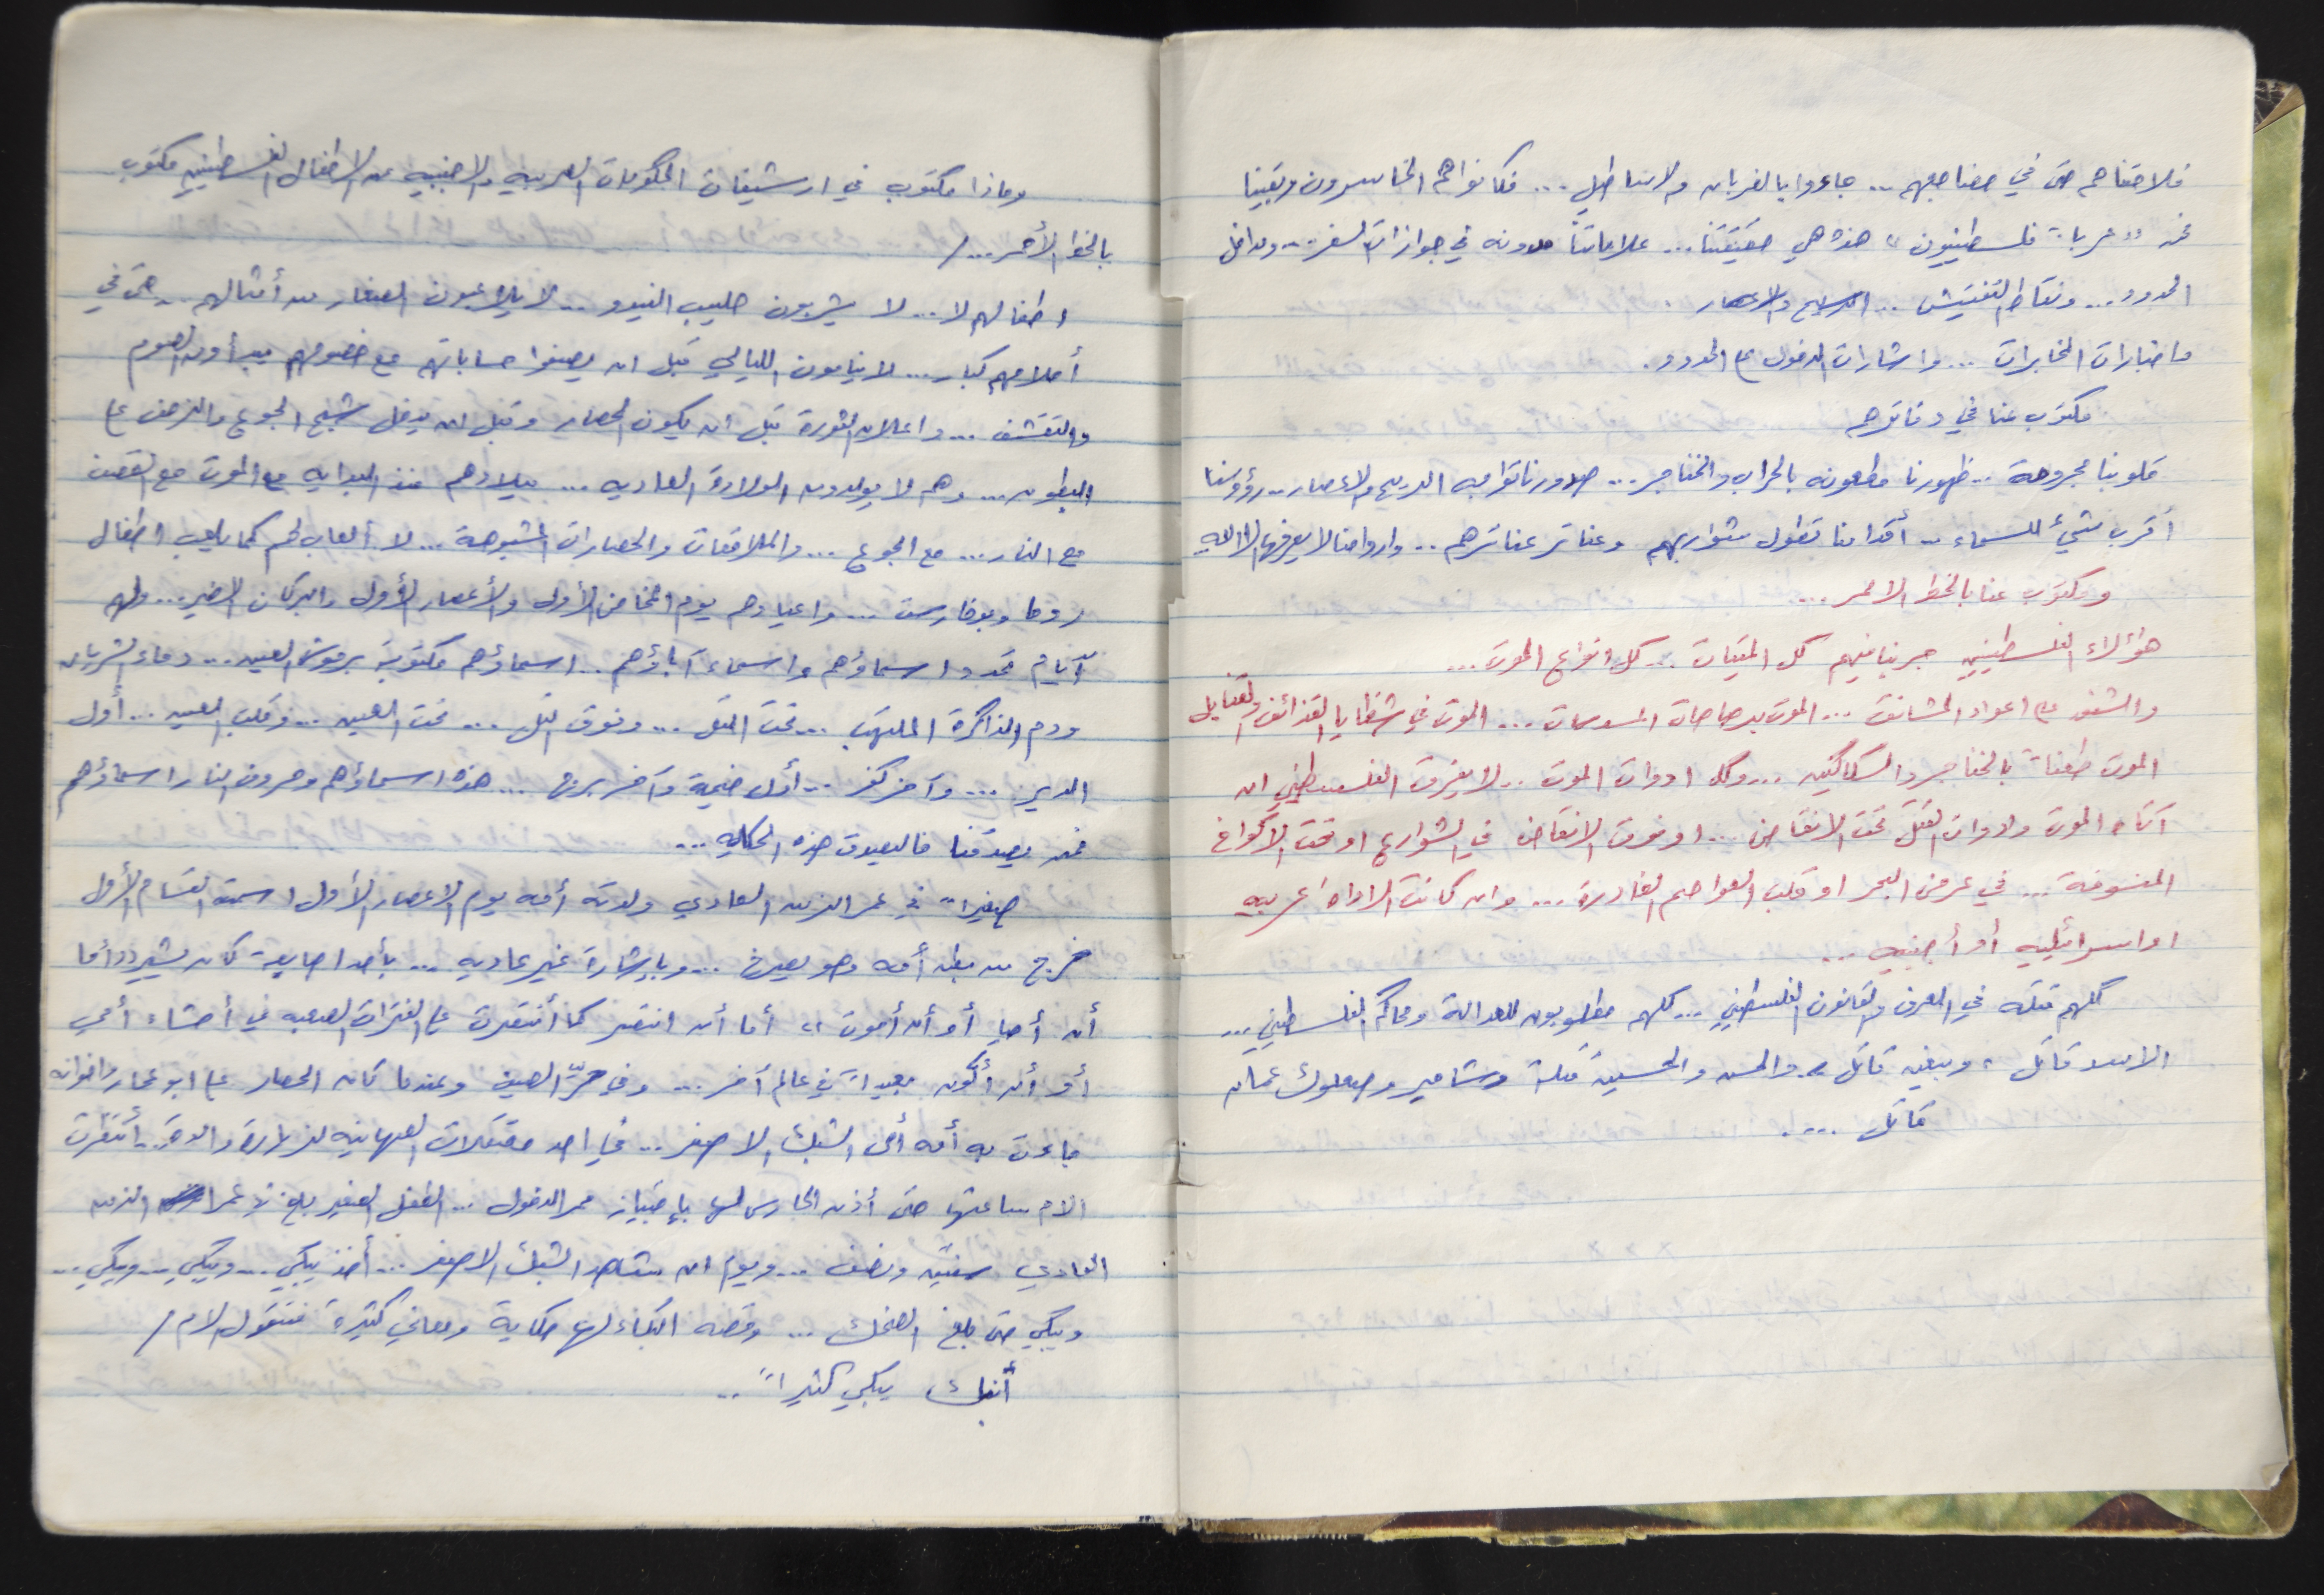 فلاحقناهم حتى في مضاجعهم ... جاءوا بالغربان والاساطيل ... فكانوا هم الخاسرون وبقينا
نحن "عربا" فلسطينيون" هذه هي حقيقتنا ... علاماتنا مدونه في جوازات السفر .. ومداخل
الحدود ... ونقاط التفتيش .. الريح والاعصار .
واخبارات المخابرات ... واشارات الدخول على الحدود .
مكتوب عنا في دفاترهم
قلوبنا مجروحة .. ظهورنا مطعونه بالحراب والخناجر ... صدورنا تواجه الريح والاعصار .. رؤوسنا
أقرب شيء للسماء .. أقدامنا تطول شواربهم وعناتر عناترهم .. وارواحنا لا يعرفها الا الله
ومكتوب عنا بالخط الاحمر ...
هؤلاء الفلسطينيين جربنا فيهم كل الميتات ... كل انواع الموت ...
والشنق على اعواد المشانق ... الموت برصاصات المسدسات ... الموت في شظايا القذائف والقنابل
الموت طعناً بالخناجر والسكاكين ... وكل ادوات الموت .. لا يفرق الفلسطيني ان
أتاه الموت وادوات القتل تحت الانقاض .. او فوق الانقاض في الشوارع او تحت الاكواخ
المنسوفة ... في عرض البحر او قلب العواصم الغادرة ... وان كانت الاداه عربيه
او اسرائيليه أو أجنبيه ...
كلهم قتله في العرف والقانون الفلسطيني ... كلهم مطلوبون للعدالة ومحاكم الفلسطيني ...
الاسد قاتل ، وبيغن قاتل ، والحسن والحسين قتلة وشامير وصعلوك عمان
قاتل ....
× × ×
وماذا مكتوب في ارشيفات الحكومات العربيه والاجنبيه عن الاطفال الفلسطينين مكتوب
بالخط الأحمر ... /
اطفالهم لا ... لا يشربون حليب النيدو .. لا يلاعبون الصغار من أمثالهم .. حتى في
أحلامهم كبار ... لا ينامون الليالي قبل ان يصفوا حساباتهم مع خصومهم يبدأون الصوم
والتقشف ... واعلان الثورة قبل ان يكون الحصار وقبل ان يدخل شبح الجوع والمرض على
البطون ... وهم لا يولدون الولادة العاديه ... ميلادهم منذ البدايه مع الموت مع القصف
مع النار ... مع الجوع ... والملاحقات والحصارات المشبوهة ... لا ألعاب لهم كما يلعب اطفال
روما وبوخارست ... واعيادهم يوم المخاض الأول والأعصار الأول والبركان الاخير ... ولهم
أيام تحدد اسماؤهم واسماء آباؤهم .. اسماؤهم مكتوبة برموش العين ... دماء الشريان
ودم الذاكرة الملتهب ... تحت التل ... وفوق التل ... تحت العين ... وقلب العين ... أول
الدير ... وآخر كفر ... أول خيمة وآخر برج ... هذه اسماؤهم وحروف النار اسماؤهم
فمن يصدقنا فاليصدق هذه الحكايه ...
صغيراً في عمر الزمن العادي ولدته أمه يوم الاعصار الأول اسمته القسام الأول
خرج من بطن أمه وهو يصرخ ... وبإشارة غير عاديه ... بأحد اصابعه كان يشير دائما
أن أحيا أو أن أموت " أما أن انتصر كما أنتصرت على الفترات الصعبه في أحشاء أمي
أو أن أكون بعيداً في عالم آخر ... وفي حرّ الصيف وعندما كان الحصار على ابو عمار واخوانه
جاءت به أمه أمام الشبك الاصفر ... في احد معتقلات الصهاينه لزيارة والده .. أنتظرت
الام ساعتها حتى أذن الحارس لها بإجتياز ممر الدخول ... الطفل الصغير بلغ في عمر الزمن
العادي سنتين ونصف ... ويوم ان شاهد الشبك الاصفر ... أخذ يبكي ... ويبكي ... ويبكي ...
ويبكي حتى بلغ الضحك ... وقصه البكاء لها حكاية ومعاني كثيرة فتقول الام /
أبنك يبكي كثيراً ..